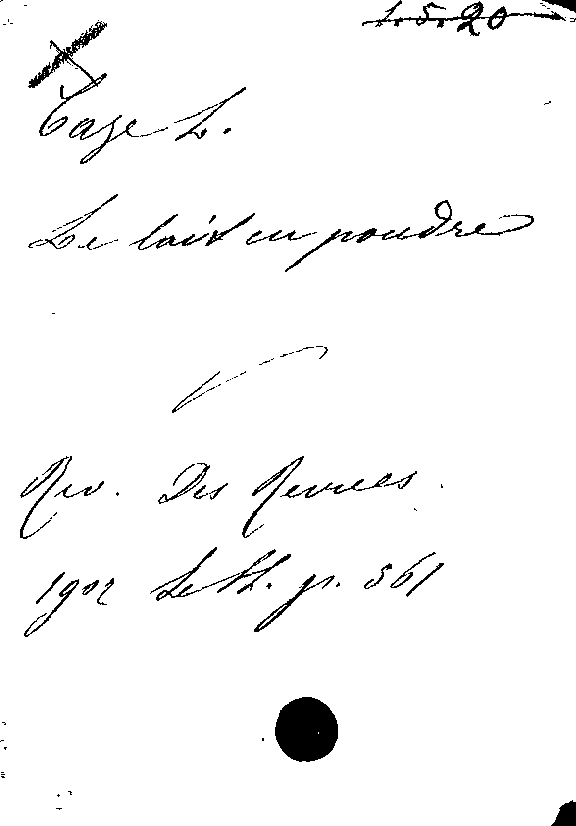 1.5.20
Caze L.
Le lait en poudre
Rev. Des Revues.
1902 Sept. p. 561